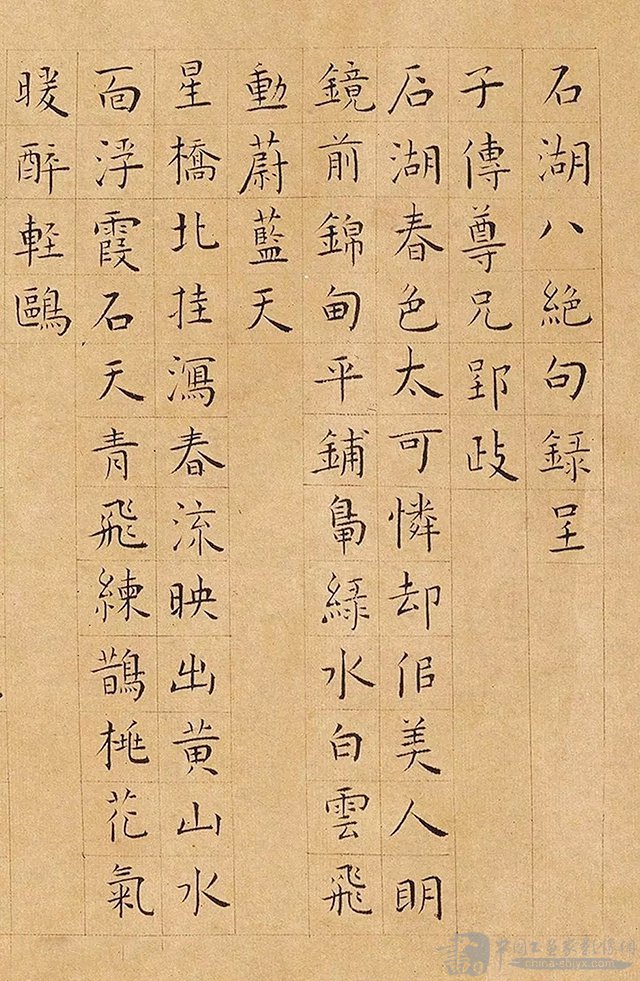 石湖八絕句錄呈
子傳尊兄郢政
石湖春色太可憐却佀美人明
鏡前錦甸平鋪鳧綠水白雲飛
動蔚藍天
星橋北挂瀉春流映出黃山水
面浮霞石天青飛練鵲桃花氣
暖醉輕鷗